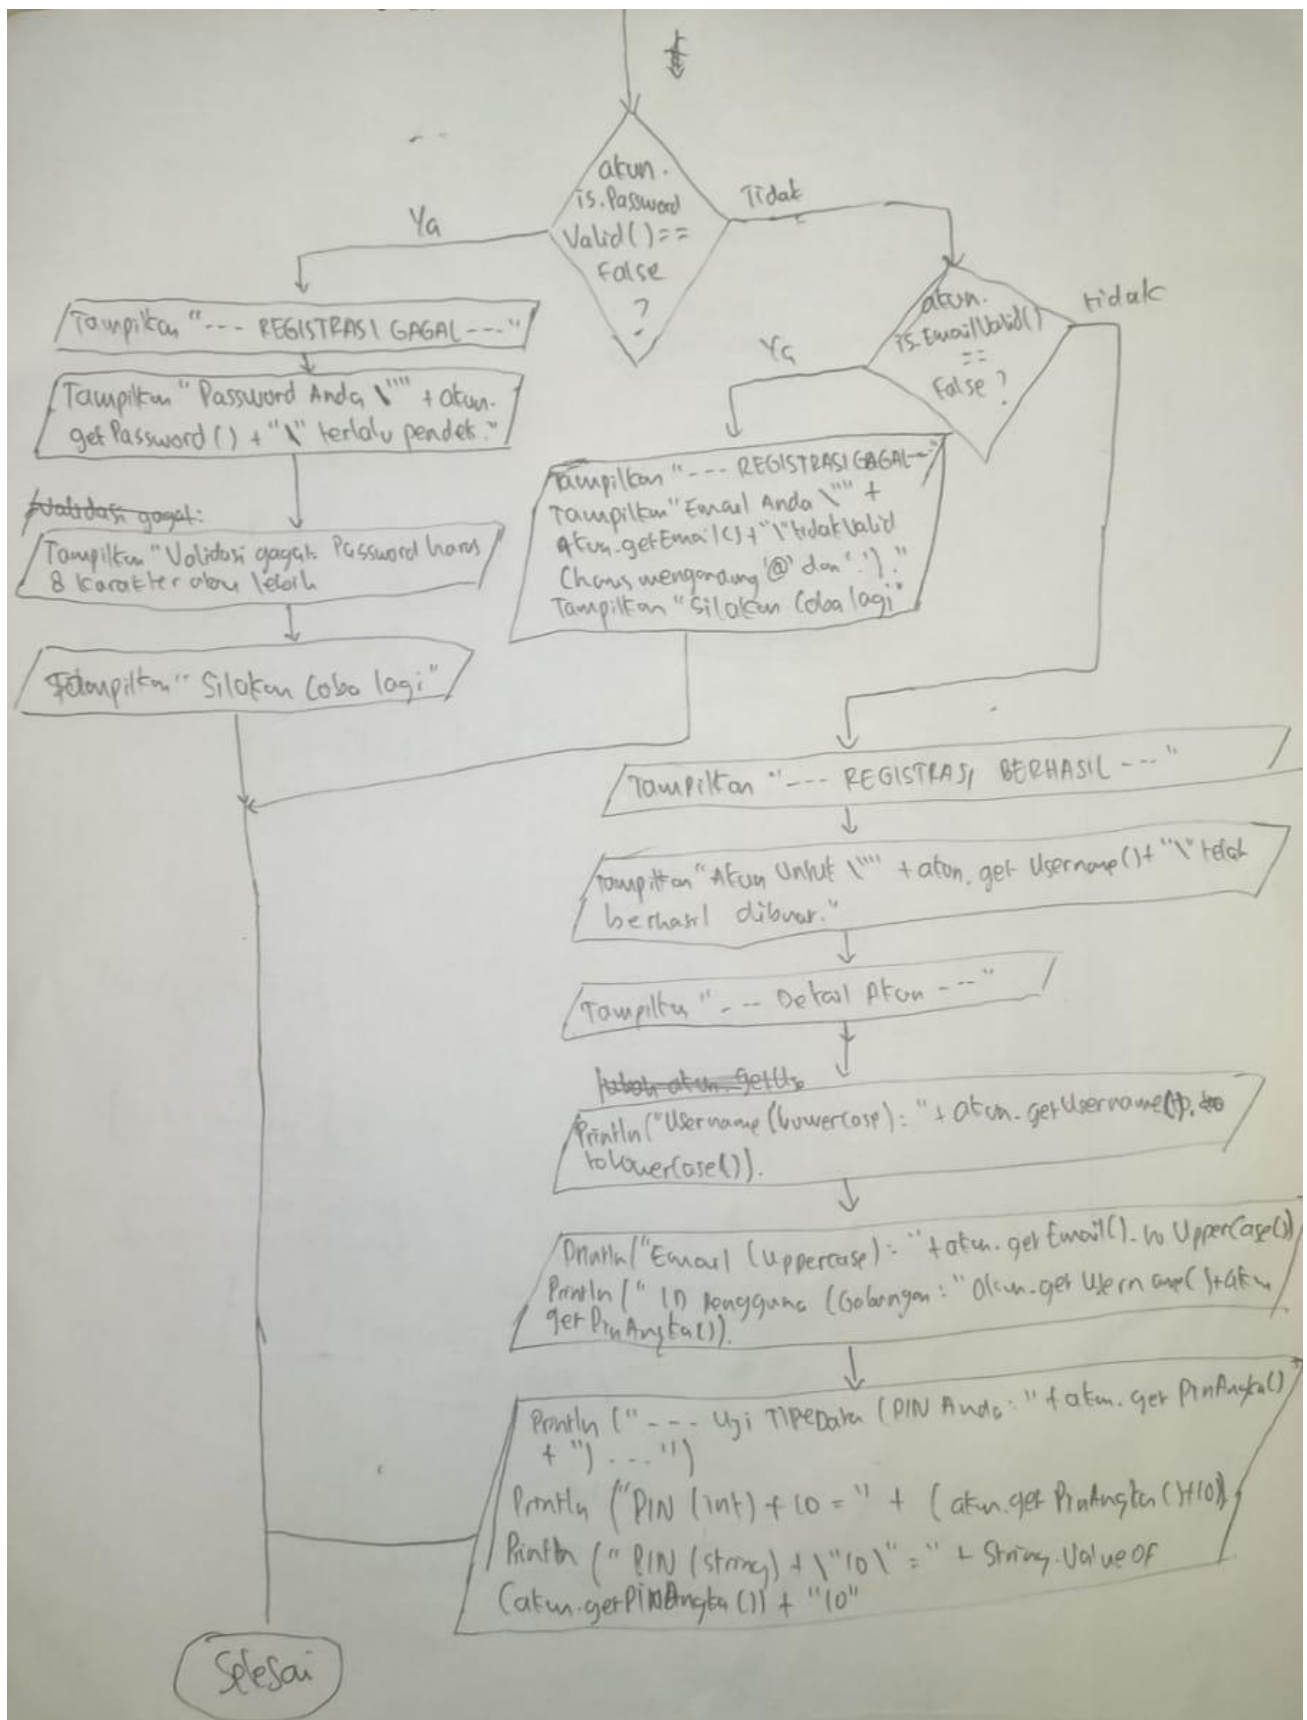 akun.
is.Password
Valid()==
False
?
Ya
Tidak
akun.
is.EmailValid()
==
False ?
Ya
tidak
Tampilkan "--- REGISTRASI GAGAL ---"
Tampilkan "Password Anda \"" + akun.
getPassword() + "\" terlalu pendek."
Validasi gagal:
Tampilkan "Validasi gagal: Password harus
8 karakter atau lebih
Tampilkan "Silakan Coba lagi"
Tampilkan "--- REGISTRASI GAGAL---"
Tampilkan "Email Anda \"" +
Akun.getEmail() + "\" tidak valid
(harus mengandung '@' dan '.')."
Tampilkan "Silakan Coba lagi"
Tampilkan "--- REGISTRASI BERHASIL ---"
Tampilkan "Akun Untuk \"" + akun.get Username() + "\" telah
berhasil dibuat."
Tampilkan "--- Detail Akun ---"
akun.getUse
Println("Username (Lowercase): " + akun.getUsername().
toLowerCase()).
Println("Email (Uppercase): " + akun.getEmail().to UpperCase())
Println(" ID Pengguna (Gabungan: " akun.get Username() + akun
getPinAngka()).
Println ("--- Uji TipeData (PIN Anda: " + akun.get PinAngka()
+ ") ---")
Println ("PIN (int) + 10 = " + (akun.get PinAngka()+10))
Println (" PIN (string) + \"10\" = " + String.ValueOf
(akun.getPINAngka()) + "10"
Selesai